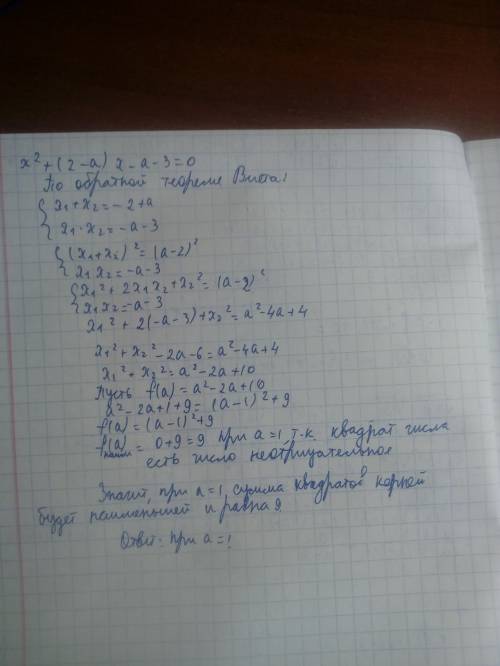 x² + (2-a) x - a - 3 = 0
По обратной теореме Виета:
{ x₁ + x₂ = - 2 + a
x₁ · x₂ = - a - 3
{ (x₁ + x₂)² = (a-2)²
x₁ x₂ = - a - 3
{ x₁² + 2x₁x₂ + x₂² = (a-2)²
x₁x₂ = - a - 3
x₁² + 2(-a-3) + x₂² = a² - 4a + 4
x₁² + x₂² - 2a - 6 = a² - 4a + 4
x₁² + x₂² = a² - 2a + 10
Пусть f(a) = a² - 2a + 10
a² - 2a + 1 + 9 = (a-1)² + 9
f(a) = (a-1)² + 9
f(a) наим = 0 + 9 = 9 при a = 1, т.к. квадрат числа
есть число неотрицательное
Значит, при a = 1, сумма квадратов корней
будет наименьшей и равна 9
Ответ: при a = 1